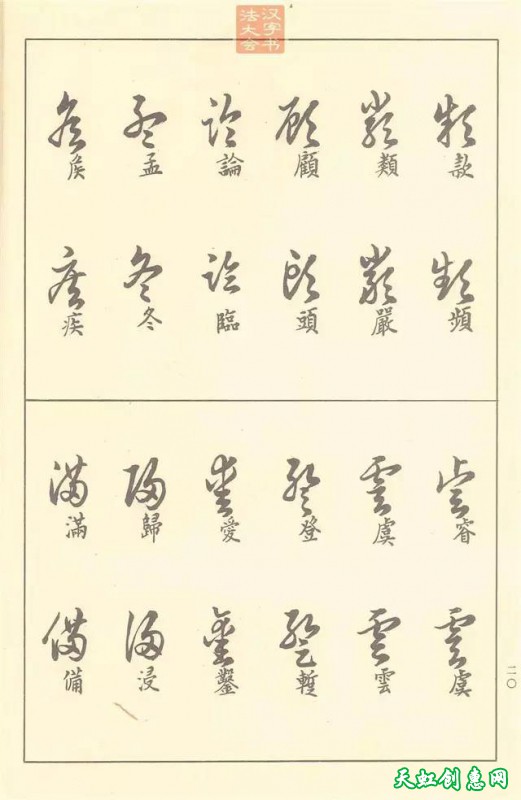 汉字书
法大会
款頻
類嚴
顧頭
論臨
孟冬
矦疾
睿虞
虞雲
登暫
愛鑿
歸浸
滿備
二〇
天虹创惠网